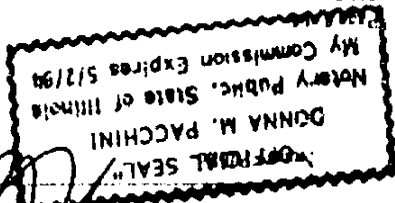 "OFFICIAL SEAL"
DONNA M. PACCHINI
Notary Public, State of Illinois
My Commission Expires 5/2/94